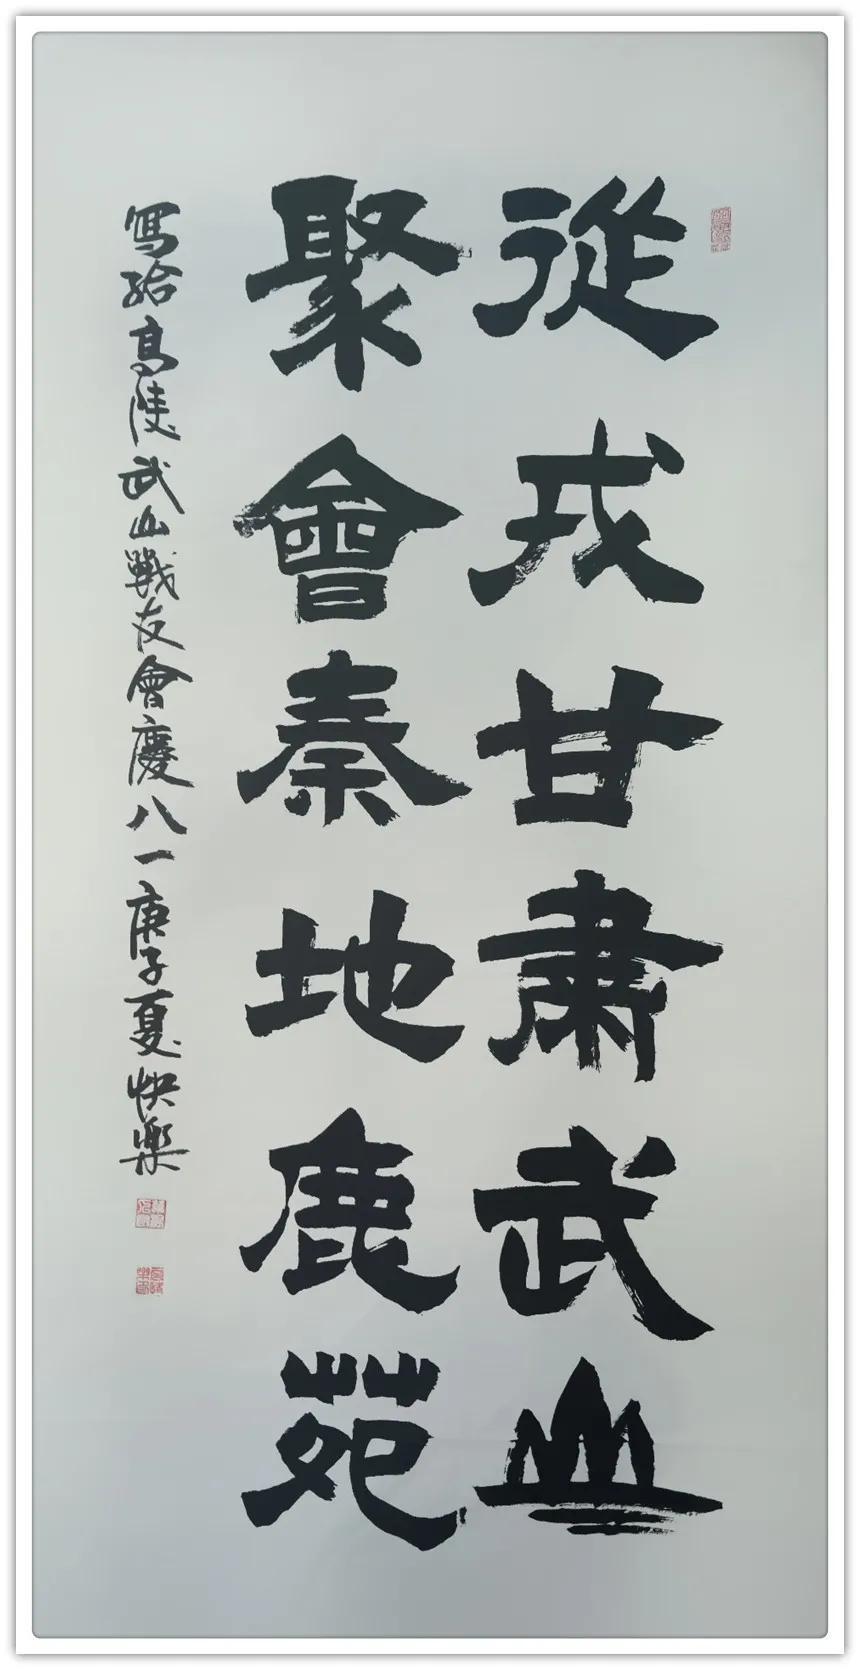 從戎甘肅武山
聚會秦地鹿苑
寫給高陵武山戰友會慶八一庚子夏快樂